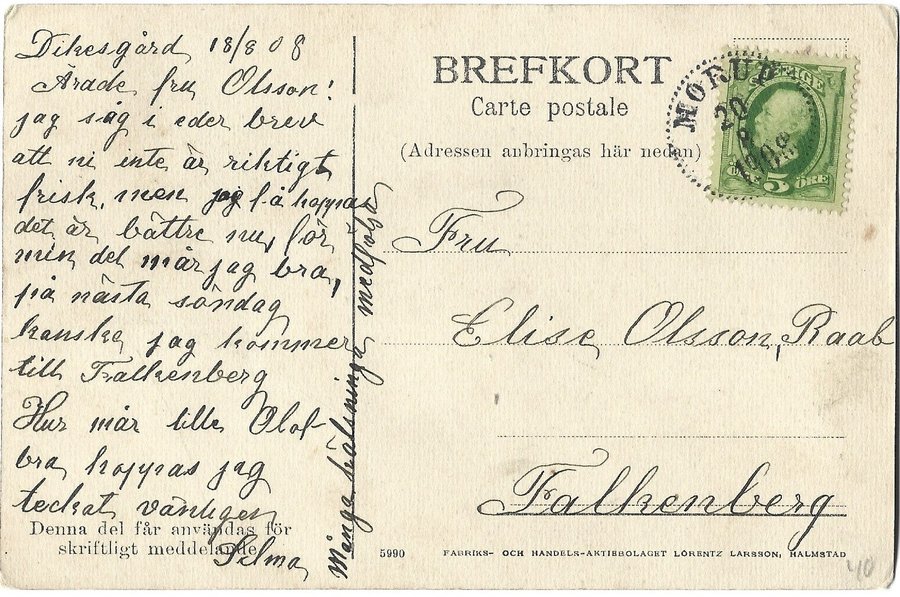 Dikesgård 18/8 08
Ärade fru Olsson!
jag såg i eder brev
att ni inte är riktigt
frisk, men jag få hoppas
det är bättre nu, för
min del mår jag bra,
på nästa söndag
kanske jag kommer
till Falkenberg
Hur mår lille Olof
bra hoppas jag
teckat vänligen
Selma
Denna del får användas för
skriftligt meddelande
Många hälsninga medfölja
BREFKORT
Carte postale
(Adressen anbringas här nedan)
MORUP
20
8
1908
SVERIGE
5 ÖRE
Fru
Elise Olsson, Raab
Falkenberg
5990
FABRIKS- OCH HANDELS-AKTIEBOLAGET LORENTZ LARSSON, HALMSTAD
40